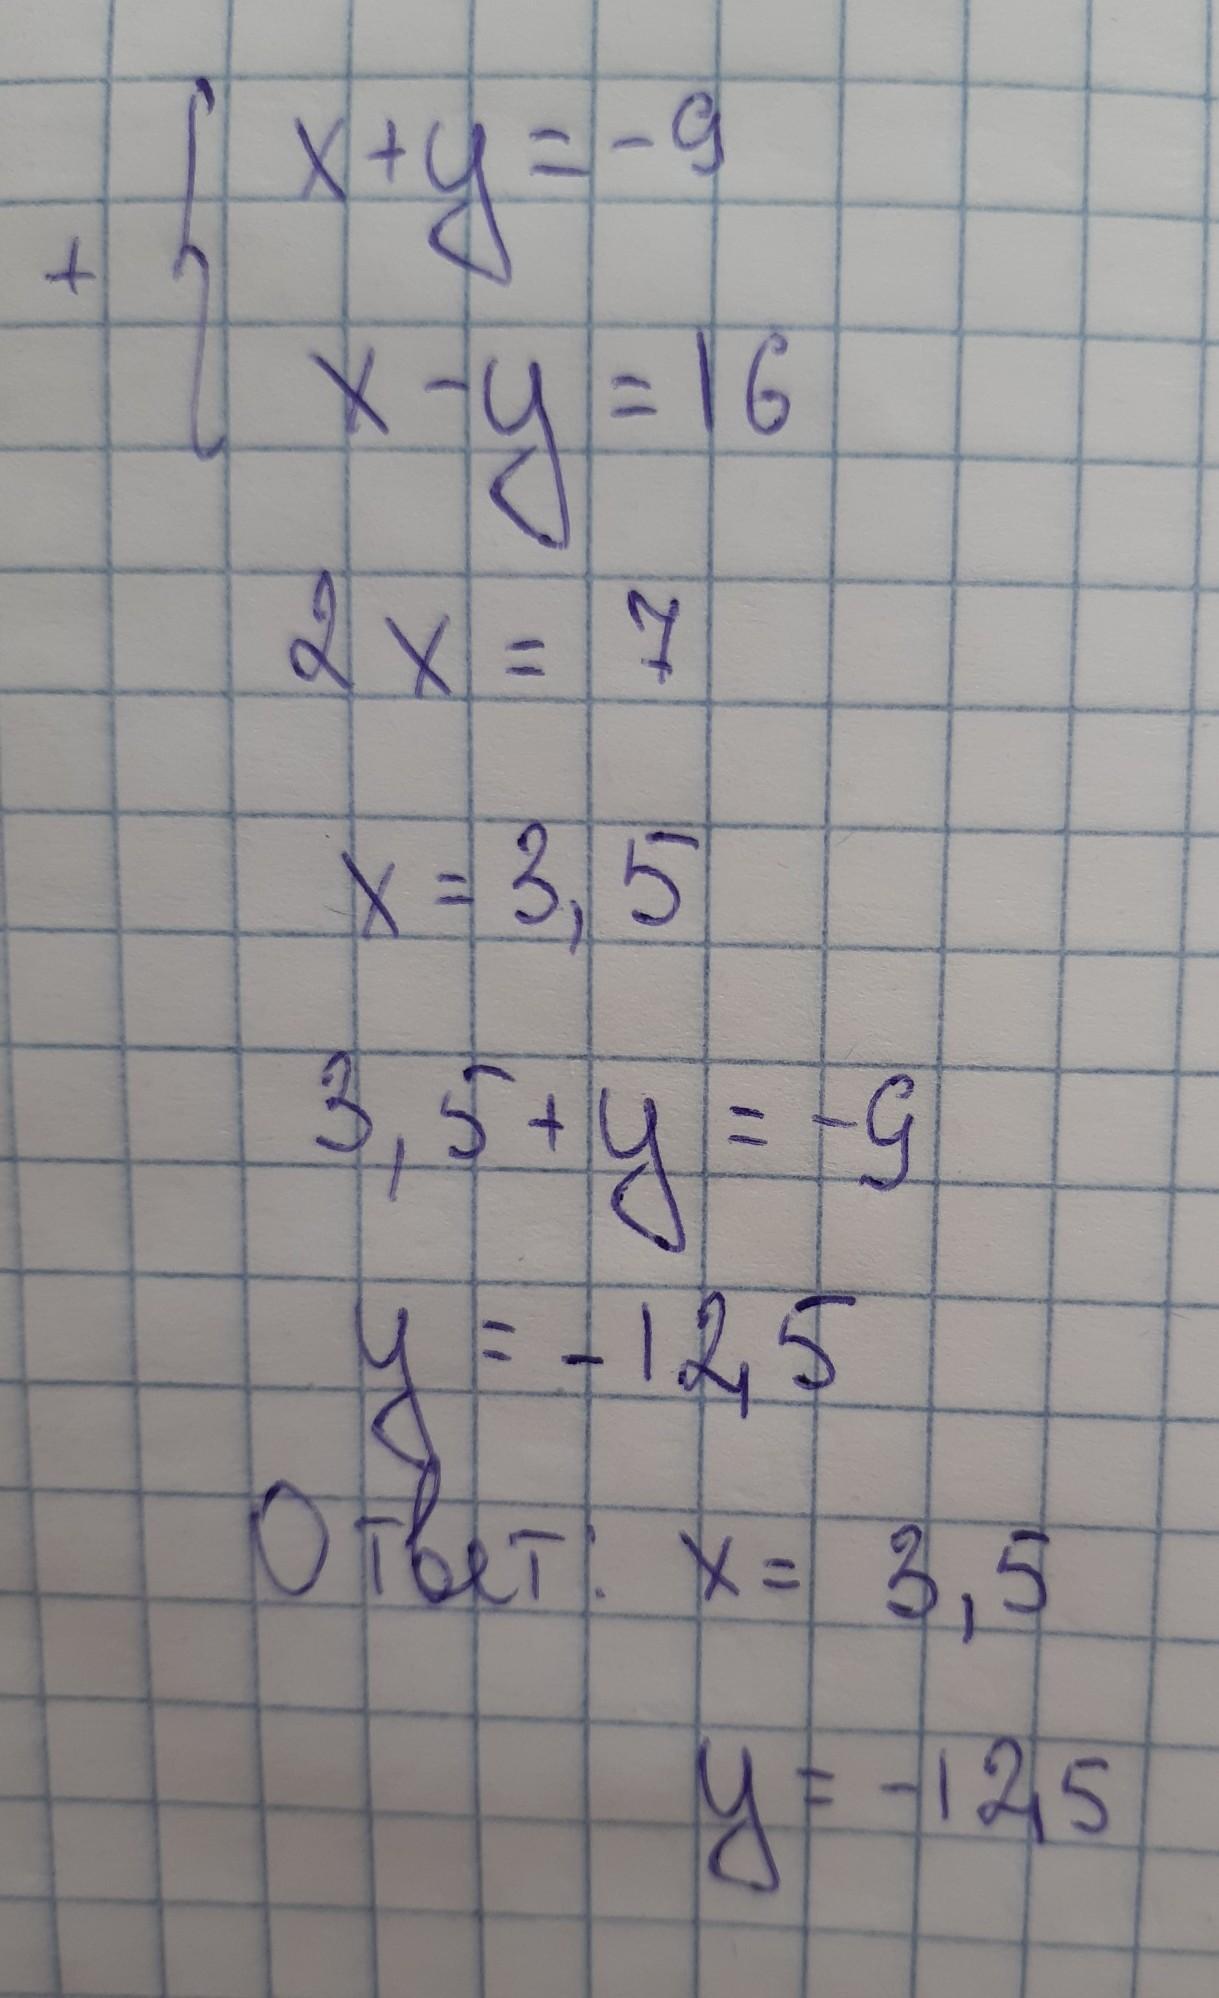 x+y=-9
+
x-y=16
2x=7
x=3,5
3,5+y=-9
y=-12,5
Ответ: x=3,5
y=-12,5